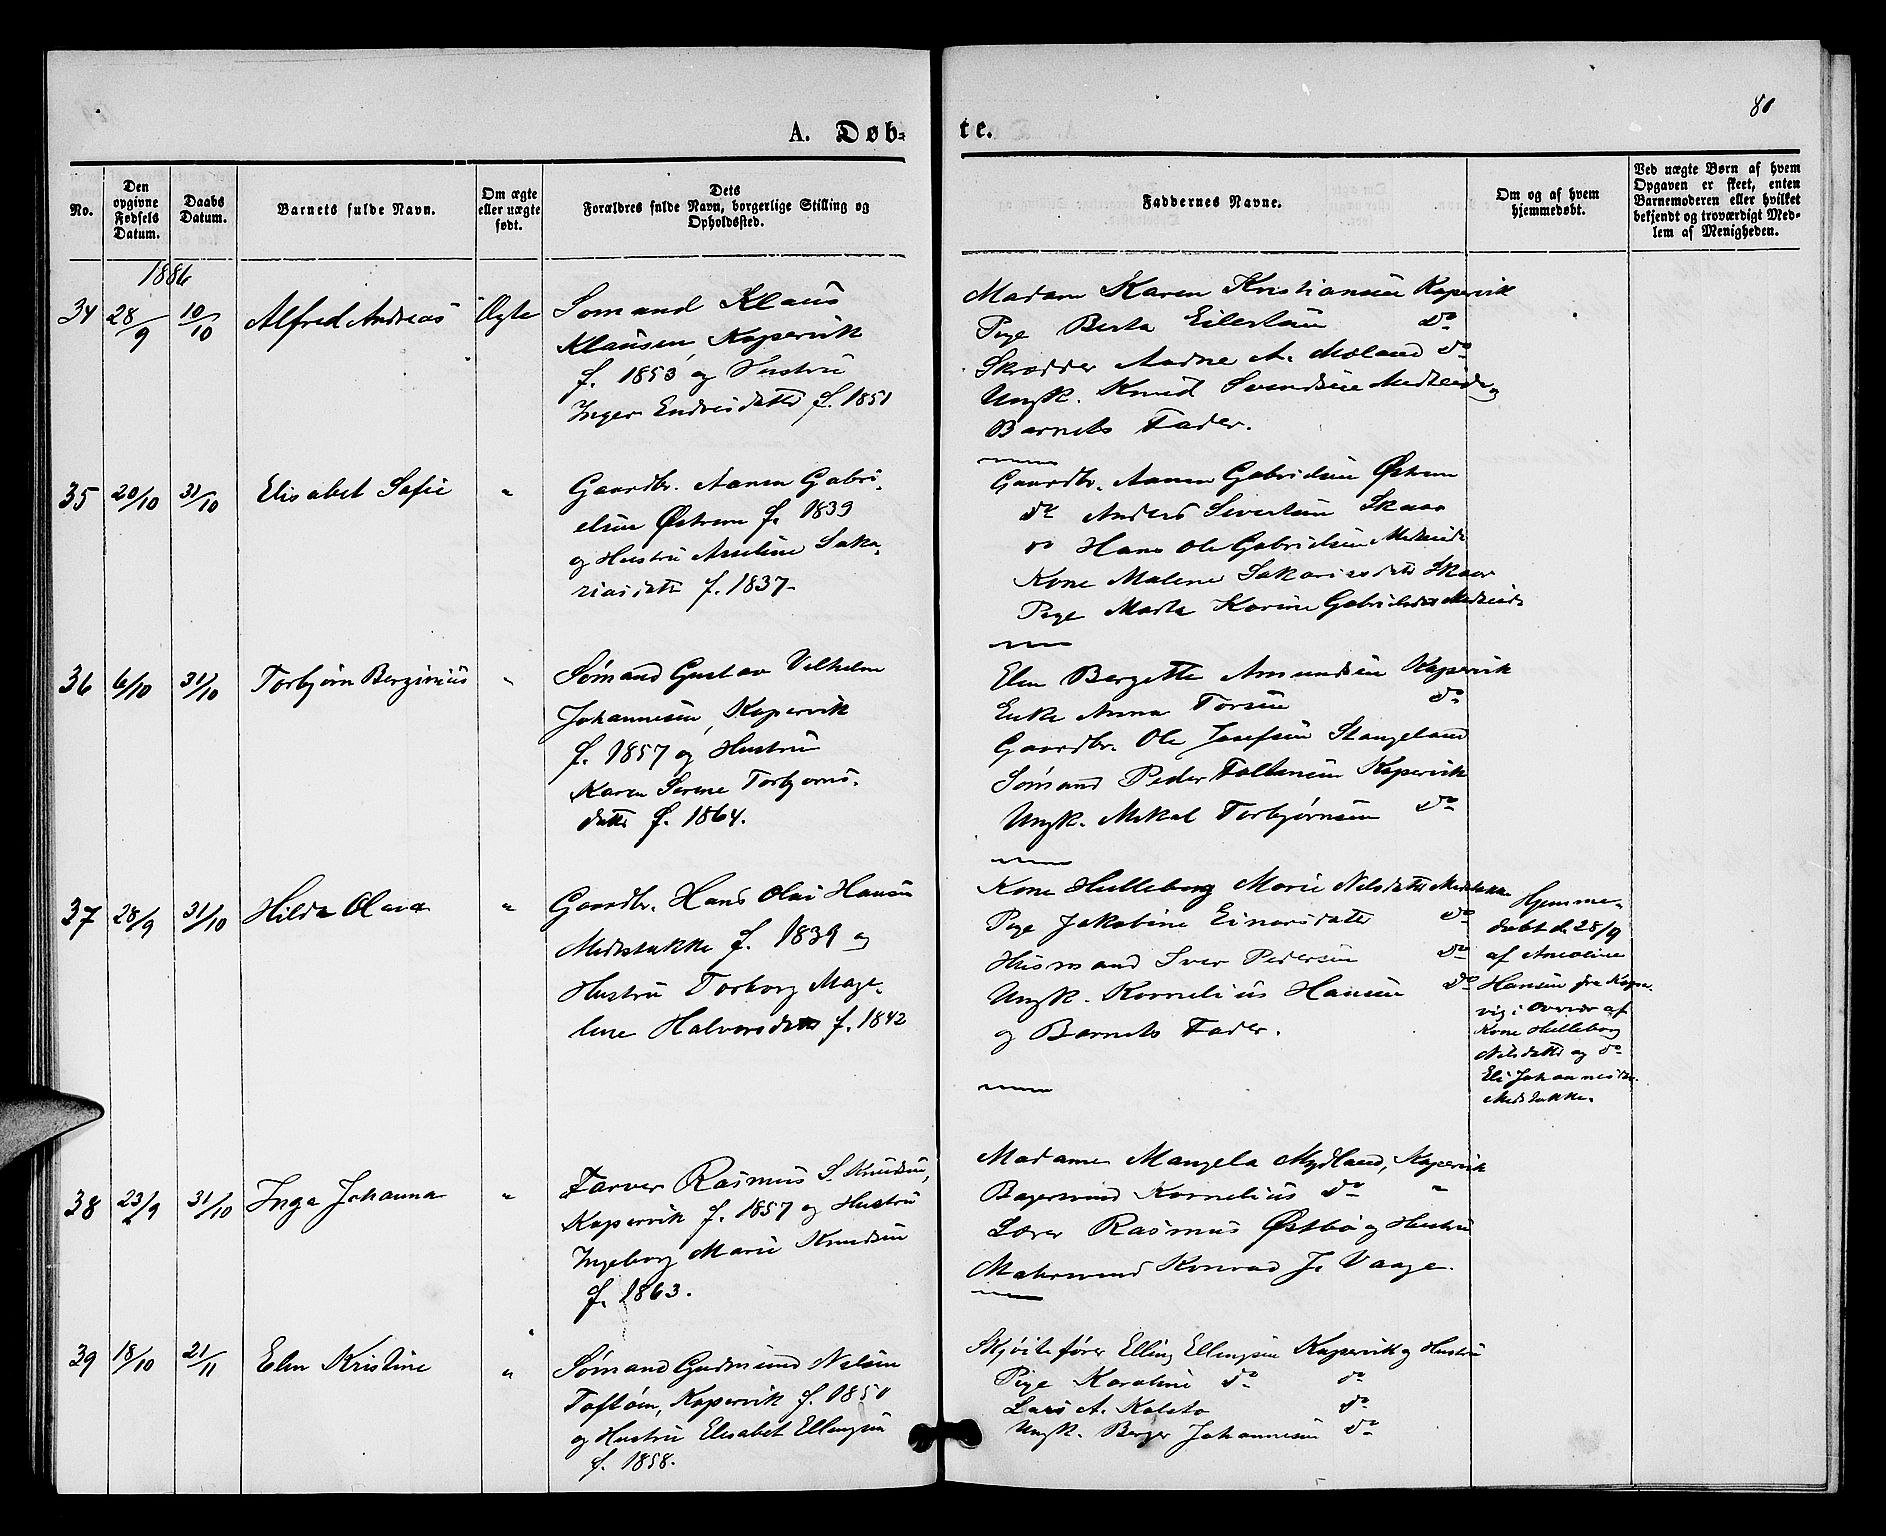 80
A. Døb-
te.
No.
Den opgivne Fødsels Datum.
Daabs Datum.
Barnets fulde Navn.
Om ægte eller uægte født.
Dets Forældres fulde Navn, borgerlige Stilling og Opholdssted.
Faddernes Navne.
Om og af hvem hjemmedøbt.
Ved uægte Børn af hvem Opgaven er skeet, enten Barnemoderen eller hvilket bekjendt og troværdigt Medlem af Menigheden.
1886
34 28/9 10/10 Alfred Andreas Ægte
Sømand Klaus
Klausen Kopervik
f. 1853 og Hustru
Inger Endresdatte f. 1851
Madam Karen Kristiansen Kopervik
Pige Berta Eilertsen do
Skrædder Aadne A. Moland do
Ungk. Knud Svendsen Medheide og
Barnets Fader.
35 20/10 31/10 Elisabet Sofie "
Gaardbr. Aanen Gabri-
elsen Østrem f. 1839
og Hustru Aseline Saka-
riasdatte f. 1837.
Gaardbr. Aanen Gabrielsen Østrem
do Anders Sivertsen Skaar
do Hans Ole Gabrielsen Medheide
Kone Malene Sakariasdatte Skaar
Pige Marta Karine Gabrielsdat Medheide
36 6/10 31/10 Torbjørn Berginius "
Sømand Gustav Vilhelm
Johannesen, Kopervik
f. 1857 og Hustru
Karen Serene Torbjørns-
datte f. 1864.
Elen Bergitte Amundsen Kopervik
Enke Anna Torsen do
Gaardbr. Ole Josefsen Stangeland
Sømand Peder Faltinsen Kopervik
Ungk. Mikal Torbjørnsen do
37 28/9 31/10 Hilda Olava "
Gaardbr. Hans Olai Hansen
Medstokke f. 1839 og
Hustru Torborg Mage-
lene Halvorsdatte f. 1842
Kone Helleborg Marie Nilsdatte Medstokke
Pige Jakobine Einarsdatte do
Husmand Iver Pedersen do
Ungk. Kornelius Hansen do
og Barnets Fader.
Hjemme-
døbt d. 28/9
af
Hansen fra Kope-
vig i Overvær af
Kone Helleborg
Nilsdatte og do
Eli Johannesdat.
Medstokke.
38 23/9 31/10 Inga Johanna "
Farver Rasmus S. Knudsen,
Kopervik f. 1857 og Hustru
Ingeborg Marie Knudsen
f. 1863.
Madame Mangela Mydland, Kopervik
Bagersvend Kornelius do "
Lærer Rasmus Østbø og Hustru
Malersvend Konrad J. Vaage.
39 18/10 21/11 Elen Kristine "
Sømand Gudmund Nelsen
Toftøen, Kopervik f. 1851
og Hustru Elisabet Ellingsen
f. 1858.
Skjøitefører Elling Ellingsen Kopervik og Hustru
Pige Karoline do do
Lars A. Kolstø do
Ungk. Berger Johannesen do